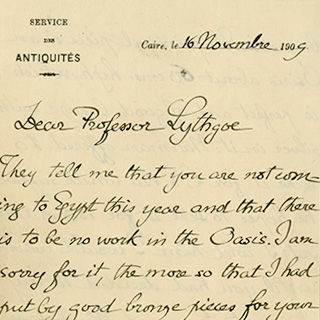 SERVICE
DES
ANTIQUITÉS
Caire, le 16 Novembre 1909
Dear Professor Lythgoe
They tell me that you are not com-
ing to Egypt this year and that there
is to be no work in the Oasis. I am
sorry for it, the more so that I had
put by good bronze pieces for your